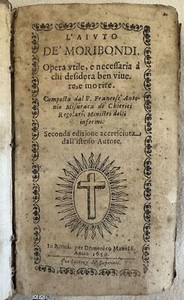 L'AIVTO
DE' MORIBONDI.
Opera vtile, e necessaria à
chi desidera ben viue-
re, e morire.
Composta dal P. Francesc' Anto-
nio de Chierici
Regolari, Ministri delli
infermi.
Seconda edizione accresciuta
dall'istesso Autore.
In Roma, per Domenico Manelfi
Anno